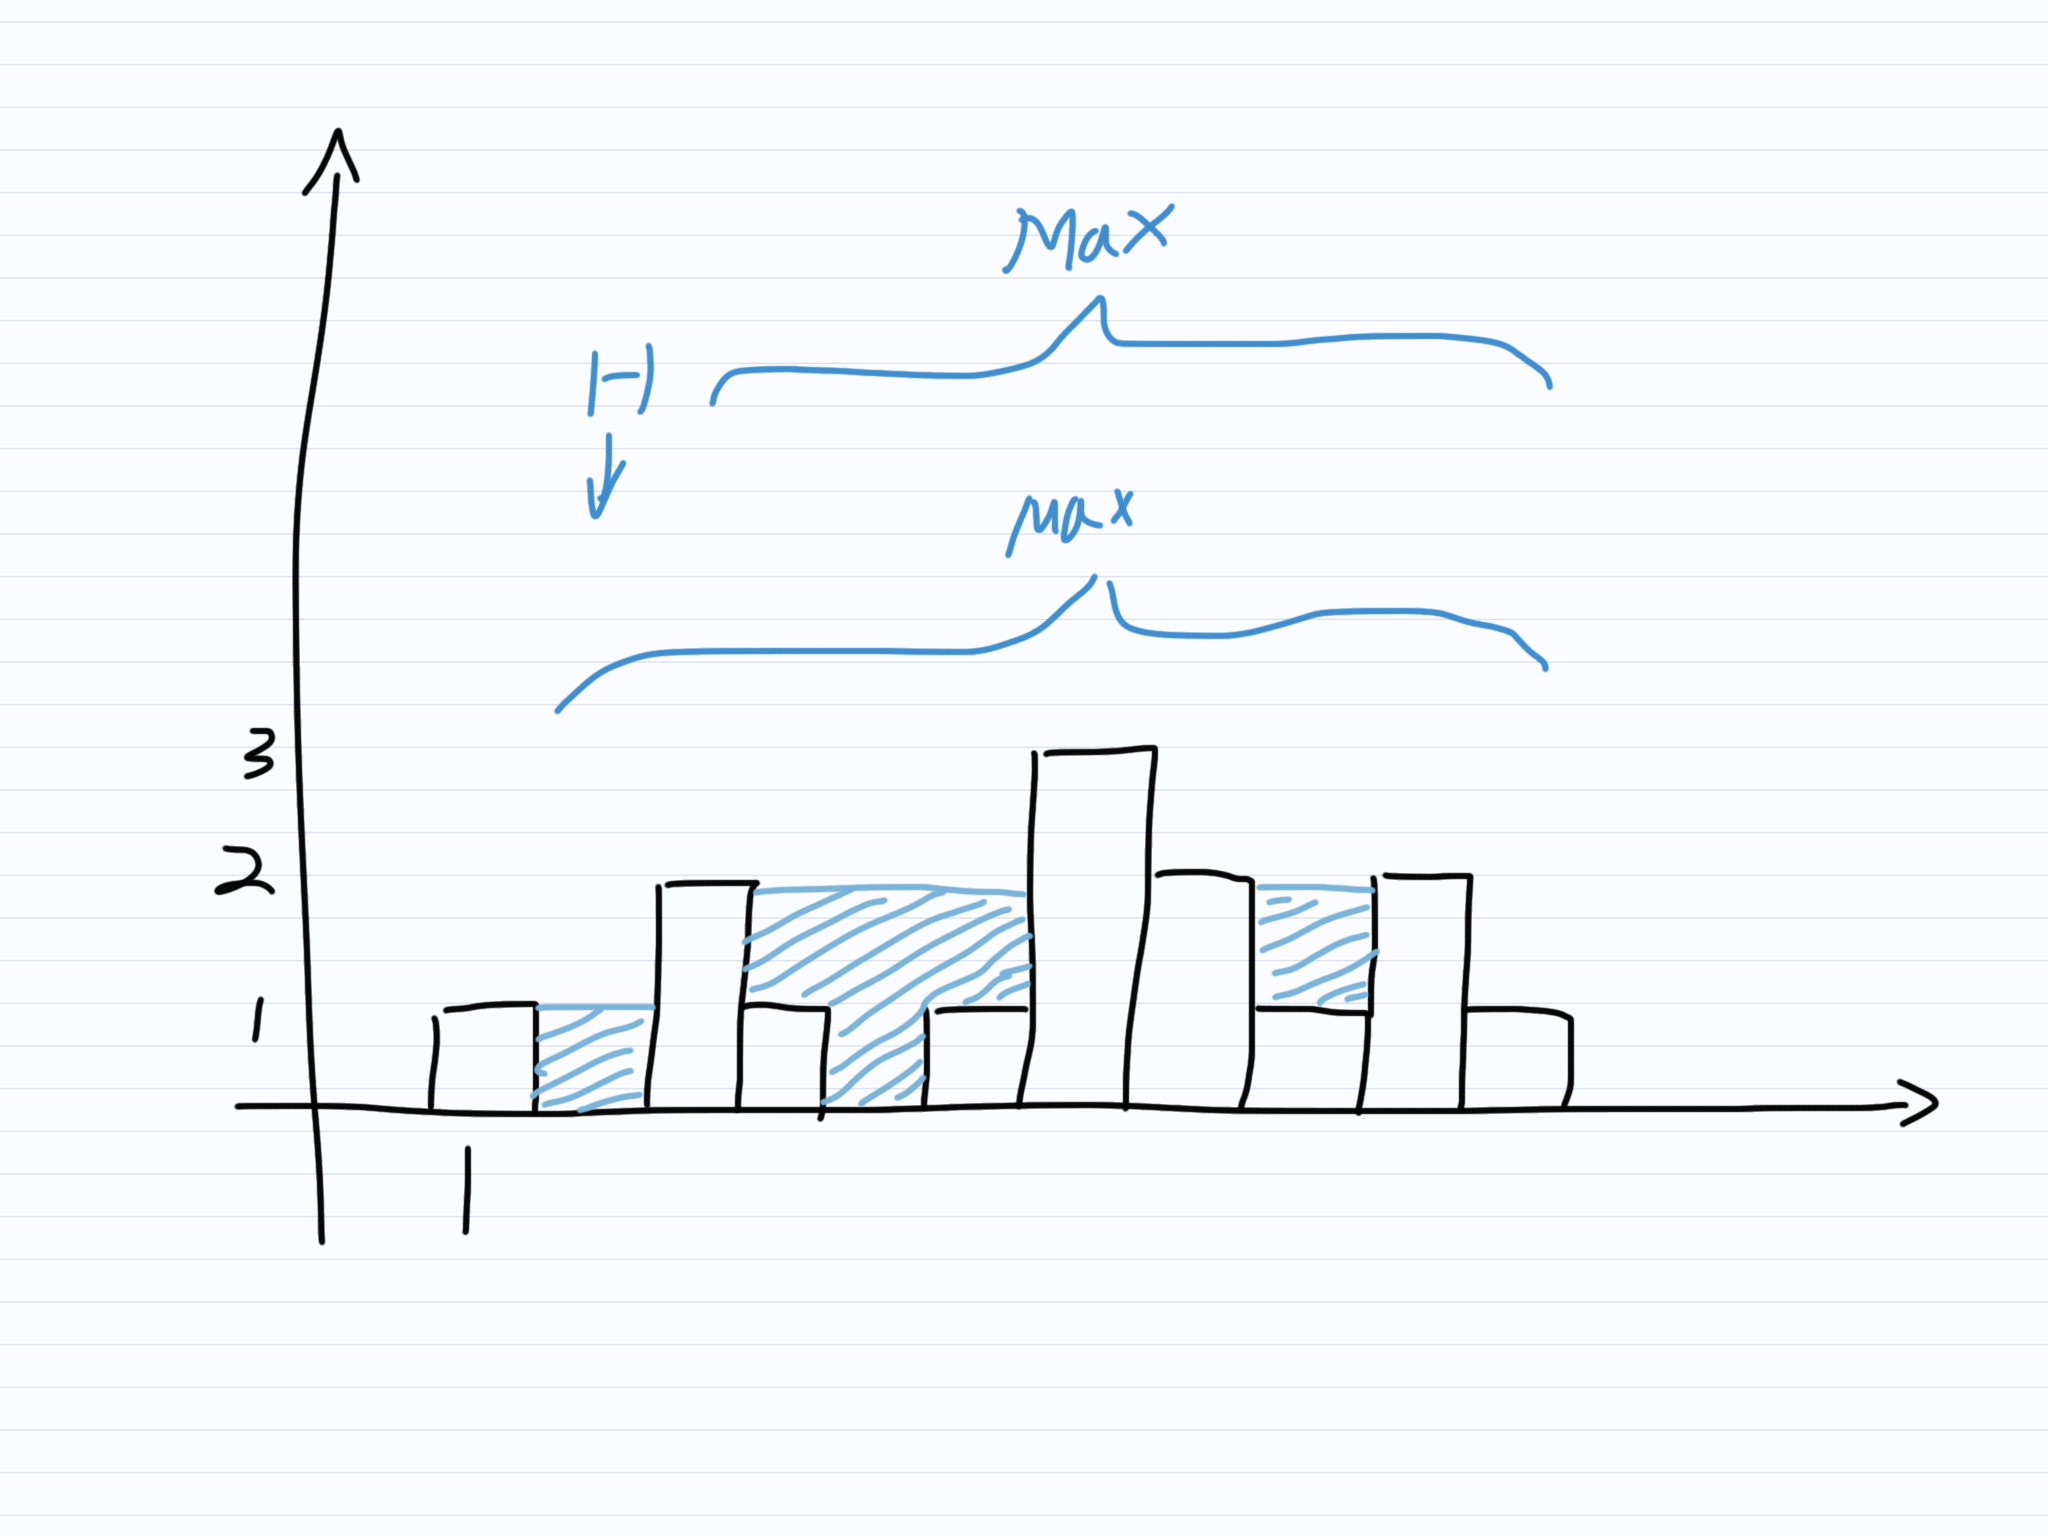 Max
H
max
3
2
1
1